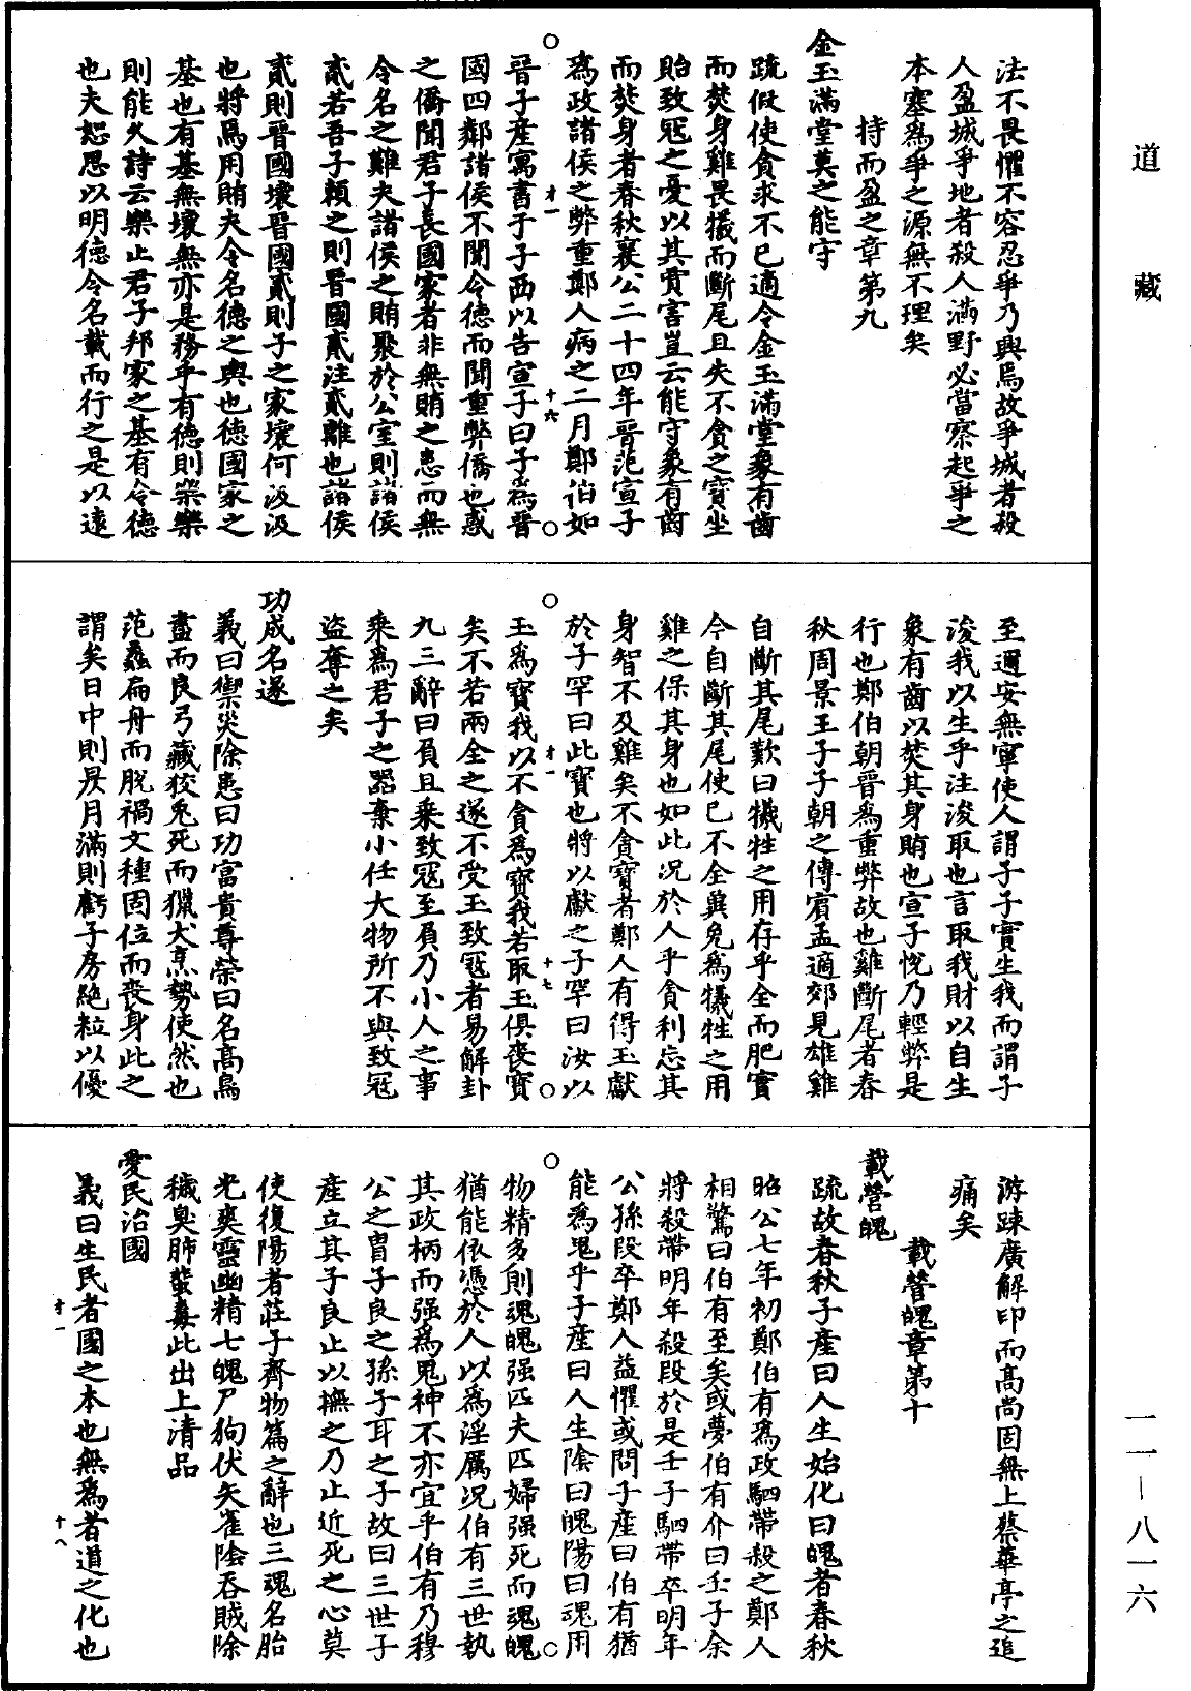 道藏
一一—八一六
法不畏懼不容忍爭乃興焉故爭城者殺
人盈城爭地者殺人滿野必當察起爭之
本塞爲爭之源無不理矣
持而盈之章第九
金玉滿堂莫之能守
疏假使貪求不已適令金玉滿堂象有齒
而焚身雞畏犧而斷尾且失不貪之寶坐
貽致冦之憂以其賈害豈云能守象有齒
而焚身者春秋襄公二十四年晉范宣子
爲政諸侯之弊重鄭人病之二月鄭伯如
晉子産寓書于子西以告宣子曰子爲晉
國四鄰諸侯不聞令德而聞重弊僑也惑
之僑聞君子長國家者非無賄之患而無
令名之難夫諸侯之賄聚於公室則諸侯
貳若吾子賴之則晉國貳注貳離也諸侯
貳則晉國壞晉國貳則子之家壞何沒沒
也將焉用賄夫令名德之輿也德國家之
基也有基無壞無亦是務乎有德則樂樂
則能久詩云樂止君子邦家之基有令德
也夫恕思以明德令名載而行之是以遠
才一
十六
至邇安無寧使人謂子子實生我而謂子
浚我以生乎注浚取也言取我財以自生
象有齒以焚其身賄也宣子悅乃輕弊是
行也鄭伯朝晉爲重弊故也雞斷尾者春
秋周景王子子朝之傅賓孟適郊見雄雞
自斷其尾歎曰犧牲之用存乎全而肥實
今自斷其尾使已不全兾免爲犧牲之用
雞之保其身也如此况於人乎貪利忘其
身智不及雞矣不貪寶者鄭人有得玉獻
於子罕曰此寶也將以獻之子罕曰汝以
玉爲寶我以不貪爲寶我若取玉俱喪寶
矣不若兩全之遂不受玉致冦者易解卦
九三辭曰負且乗致冦至負乃小人之事
乗爲君子之器棄小任大物所不與致冦
盗奪之矣
功成名遂
義曰禦災除患曰功富貴尊榮曰名高鳥
盡而良弓藏狡兎死而獵犬烹勢使然也
范蠡扁舟而脫禍文種固位而喪身此之
謂矣日中則昃月滿則虧子房絶粒以優
才一
十七
游踈廣解印而高尚固無上蔡華亭之追
痛矣
載營魄章第十
載營魄
疏故春秋子産曰人生始化曰魄者春秋
昭公七年初鄭伯有爲政駟帶殺之鄭人
相驚曰伯有至矣或夢伯有介曰壬子余
將殺帶明年殺段於是壬子駟帶卒明年
公孫段卒鄭人益懼或問子産曰伯有猶
能爲鬼乎子産曰人生隂曰魄陽曰魂用
物精多則魂魄强匹夫匹婦强死而魂魄
猶能依憑於人以爲淫厲况伯有三世執
其政柄而强爲鬼神不亦宜乎伯有乃穆
公之胄子良之孫子耳之子故曰三世子
産立其子良止以撫之乃止近死之心莫
使復陽者莊子齊物篇之辭也三魂名胎
光爽靈幽精七魄尸狗伏矢雀隂吞賊除
穢臭肺蜚毒此出上清品
愛民治國
義曰生民者國之本也無爲者道之化也
才一
十八